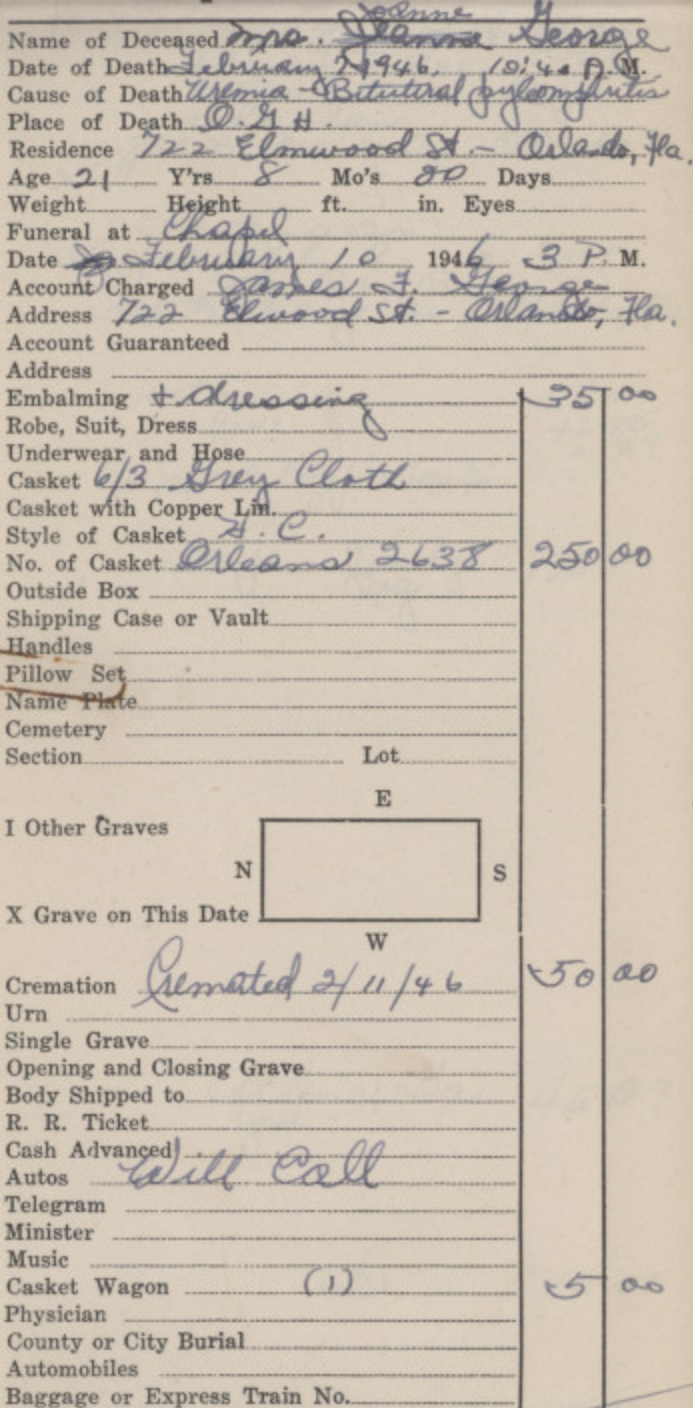 Joanne
Name of Deceased Mrs. Jeanne George
Date of Death February 7 1946. 10:40 A.M.
Cause of Death Uremia - Bilateral pyelonephritis
Place of Death O.G.H.
Residence 722 Elmwood St. - Orlando, Fla.
Age 21 Y'rs 8 Mo's 20 Days
Weight Height ft. in. Eyes
Funeral at Chapel
Date February 10 1946 3 P. M.
Account Charged James F. George
Address 722 Elwood St. - Orlando, Fla.
Account Guaranteed
Address
Embalming + dressing 35 00
Robe, Suit, Dress
Underwear and Hose
Casket 6/3 Grey Cloth
Casket with Copper Lin.
Style of Casket H.C.
No. of Casket Orleans 2638 250 00
Outside Box
Shipping Case or Vault
Handles
Pillow Set
Name Plate
Cemetery
Section Lot
E
I Other Graves
N S
X Grave on This Date
W
Cremation Cremated 2/11/46 50 00
Urn
Single Grave
Opening and Closing Grave
Body Shipped to
R. R. Ticket
Cash Advanced
Autos Will Call
Telegram
Minister
Music
Casket Wagon (1) 5 00
Physician
County or City Burial
Automobiles
Baggage or Express Train No.